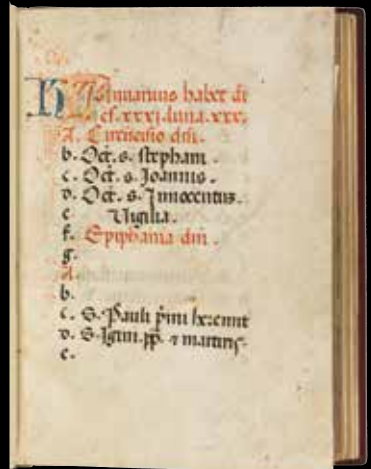 KL Januarius habet di
es. xxxi. luna. xxx.
A. Circũcisio dñi.
b. Oct. s. stephani.
c. Oct. s. Joannis.
d. Oct. s. Innocentus.
e. Vigilia.
f. Epiphania dñi.
g.
A.
b.
c. S. Pauli pĩmi heremit
d. S. Igini. pp. ⁊ martiris.
e.